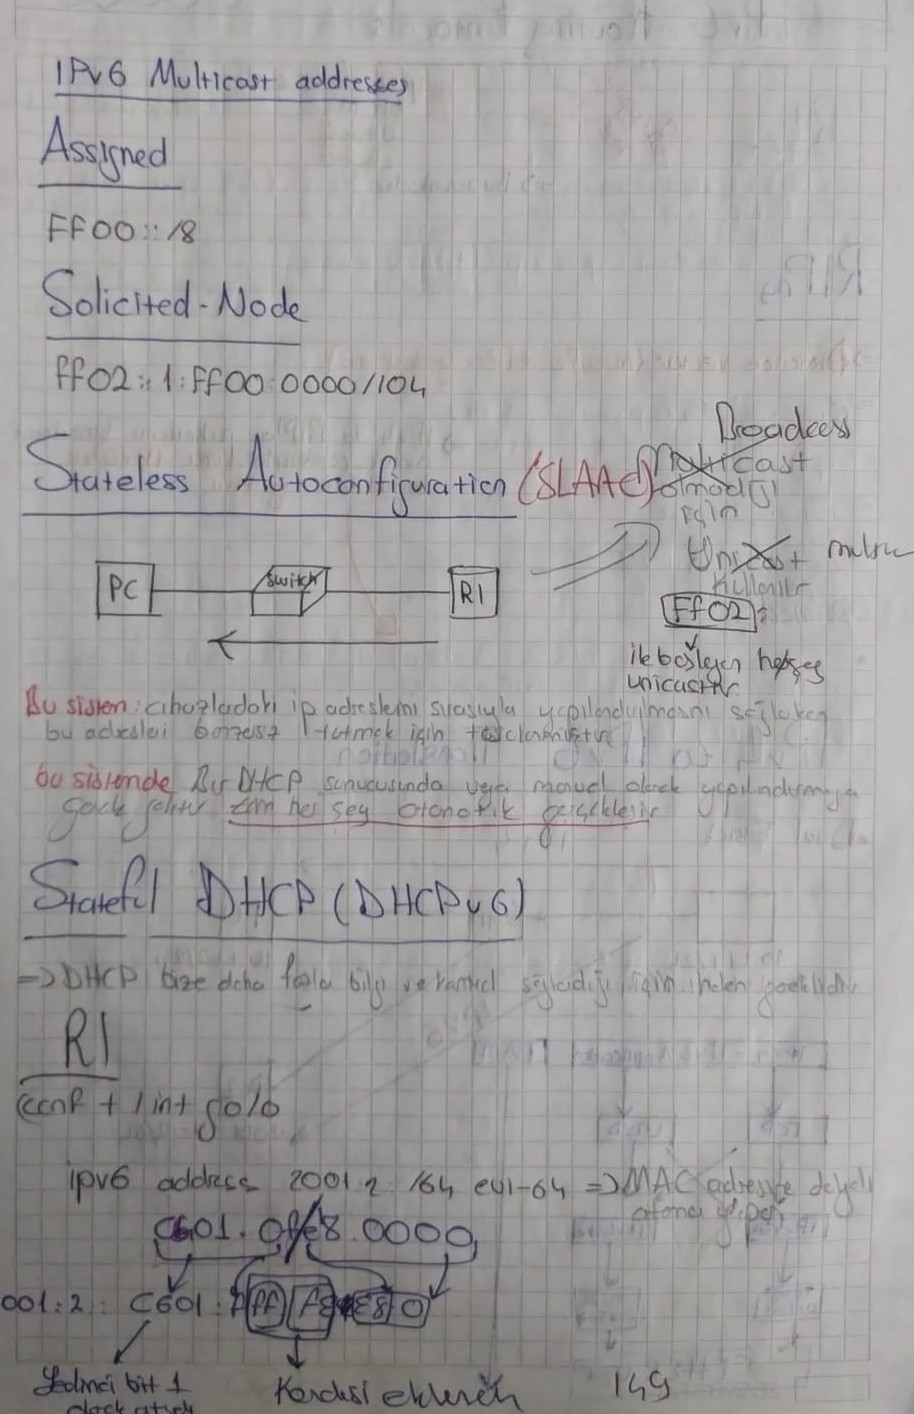 IPv6 Multicast addresses
Assigned
FF00::/8
Solicited-Node
FF02::1:FF00:0000/104
Stateless Autoconfiguration (SLAAC)
Broadcass
Multicast
olmadığı
için
Unicast multic
kullanılır
FF02::
ile başlayan herşey
unicasttir
PC
Switch
R1
Bu sistem: cihazlardaki ip adreslerini sırasıyla yapılandırılmasını sağlarken
bu adresleri tutmak için
bu sistemde Bir DHCP sunucusunda veya manuel olarak yapılandırmaya
gerek her şey otomatik gerçekleşir
Stateful DHCP (DHCPv6)
=> DHCP bize daha fazla bilgi ve kontrol sağladığı için halen gereklidir
R1
conf t / int g0/0
ipv6 address 2001:2::/64 eui-64 => MAC adresiyle
C601.0fe8.0000
001:2: C601: FF FE E8 0
Yedinci bit 1
olarak
Kendisi eklenir
149